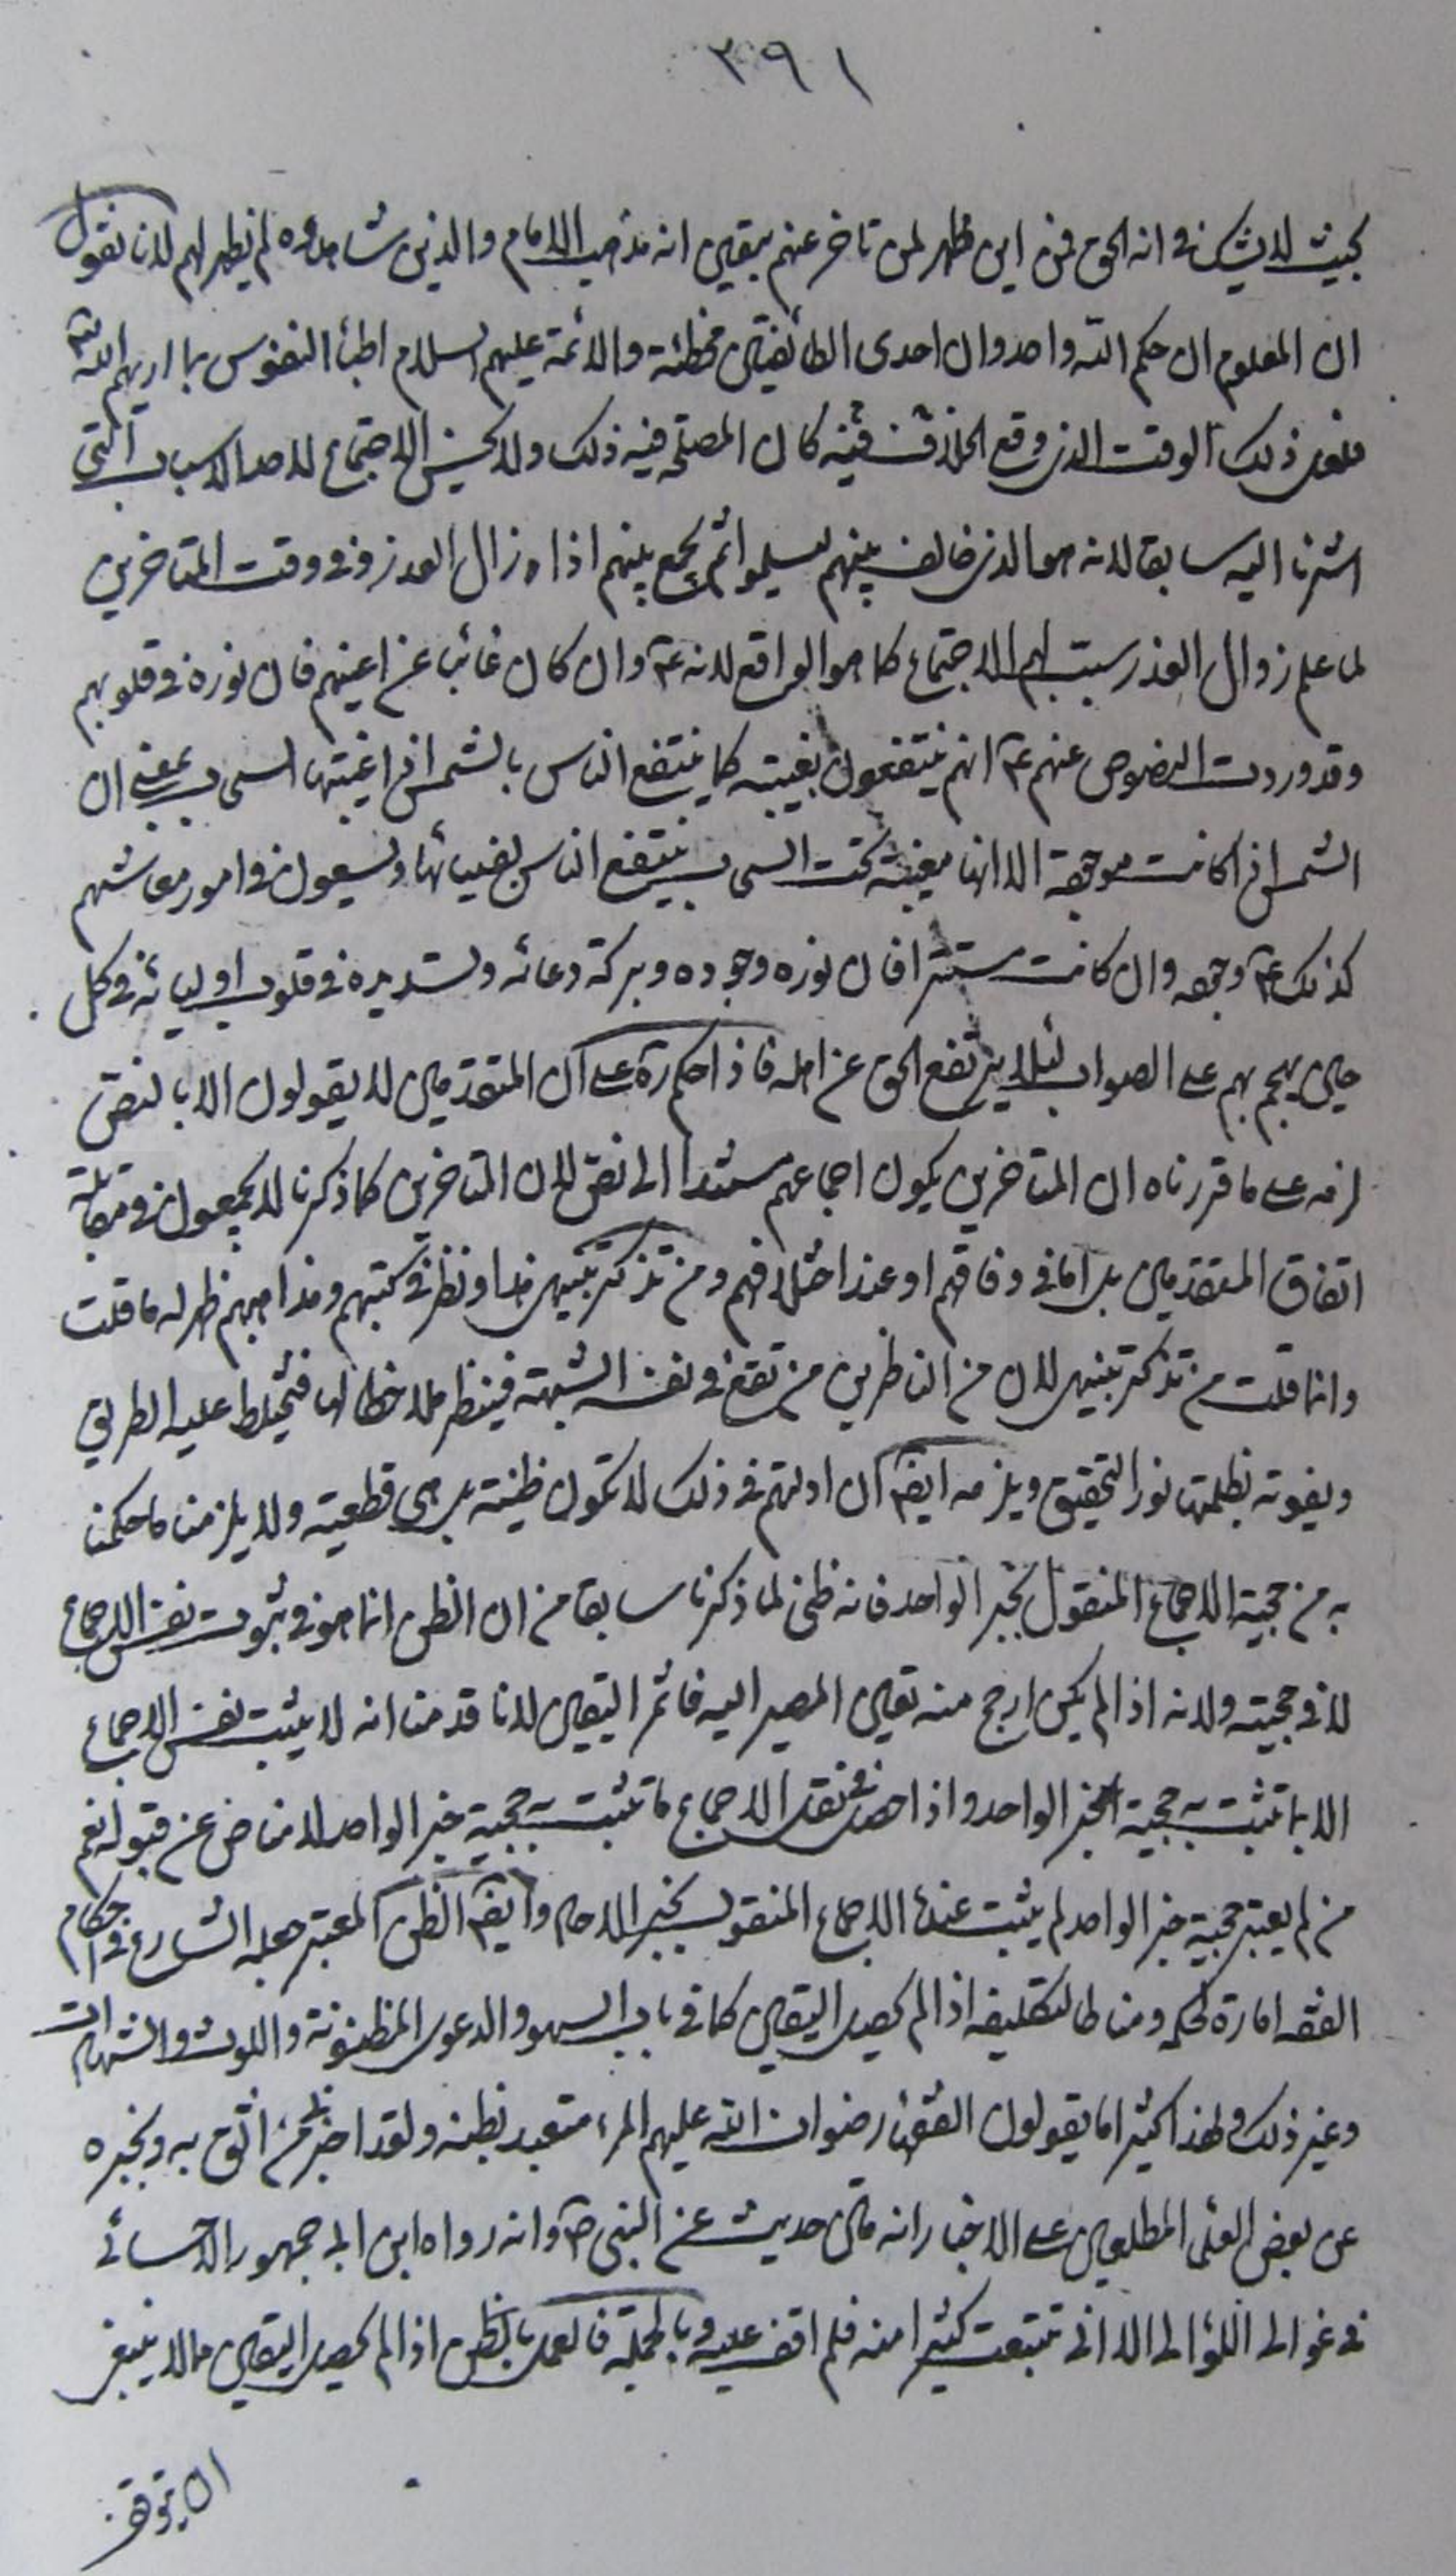 ٣٩١
بحيث لا يشك في انه الحق فمن اين ظهر لمن تاخر عنهم بيقين انه مذهب الامام والذين شاهدوه لم يظهر لهم لانا نقول
ان المعلوم ان حكم الله واحد وان احدى الطائفتين مخطئة والائمة عليهم السلام اطباء النفوس بما اريهم الله
فلعل ذلك الوقت الذي وقع الخلاف فيه كان المصلحة فيه ذلك ولا يحسن الاجتماع لاحد الاسباب التي
اشرنا اليه سابقا لانه هو الذي خالف بينهم ليسلموا ثم يجمع بينهم اذا زال العذر وفي وقت المتاخرين
لما علم زوال العذر سبب لهم الاجتماع كما هو الواقع لانه ع وان كان غائبا عن اعينهم فان نوره في قلوبهم
وقد وردت النصوص عنهم ع انهم ينتفعون بغيبته كما ينتفع الناس بالشمس اذا غيبتها السحاب بمعنى ان
الشمس اذا كانت موجودة الا انها مغيبة تحت السحاب ينتفع الناس بضيائها ويسعون في امور معاشهم
كذلك ع وجهه وان كانت مستترا فان نوره وجوده وبركة دعائه وتسديده في قلوب اوليائه في كل
حين يهجم بهم على الصواب لئلا يرتفع الحق عن اهله فاذا حكم ره على ان المتقدمين لا يقولون الا بالنص
لزمه على ما قررناه ان المتاخرين يكون اجماعهم مستندا الى نص لان المتاخرين كما ذكرنا لا يجمعون في مقابلة
اتفاق المتقدمين بل اما في وفاقهم او عند اختلافهم ومن تذكر بتنبيهي هذا ونظر في كتبهم ومذاهبهم ظهر له ما قلت
وانما قلت من تذكر بتنبيهي لان من الناظرين من تقع في نفسه الشبهة فينظر ملاحظا لها فتختلط عليه الطريق
ويفوته بظلمتها نور التحقيق ويلزمه ايضا ان ادلتهم في ذلك لا تكون ظنية بل هي قطعية ولا يلزمنا ما حكمنا
به من حجية الاجماع المنقول بخبر الواحد فانه ظني لما ذكرنا سابقا من ان الظن انما هو في ثبوت نفس الاجماع
لا في حجيته ولانه اذا لم يكن ارجح منه تعين المصير اليه فاثمر اليقين لانا قدمنا انه لا يثبت نفس الاجماع
الا بما تثبت به حجية الخبر الواحد واذا حصل في نقل الاجماع ما تثبت به حجية خبر الواحد لا مناص عن قبوله نعم
من لم يعتبر حجية خبر الواحد لم يثبت عنده الاجماع المنقول بخبر الاحاد وايضا الظن المعتبر جعله الشارع في احكام
الفقه امارة لحكمه ومناطا لتكليفه اذا لم يحصل اليقين كما في باب السهو والدعوى المظنونة واللوث والشهادات
وغير ذلك ولهذا كثيرا ما يقولون الفقهاء رضوان الله عليهم المرء متعبد بظنه ولقد اخبرني من اثق به وبخبره
عن بعض العلماء المطلعين على الاخبار انه قال حديث عن النبي ص وانه رواه ابن ابي جمهور الاحسائي
في غوالي اللؤالي الا اني تتبعت كثيرا منه فلم اقف عليه وبالجملة فالعمل بالظن اذا لم يحصل اليقين مما لا ينبغي
ان يتوقف